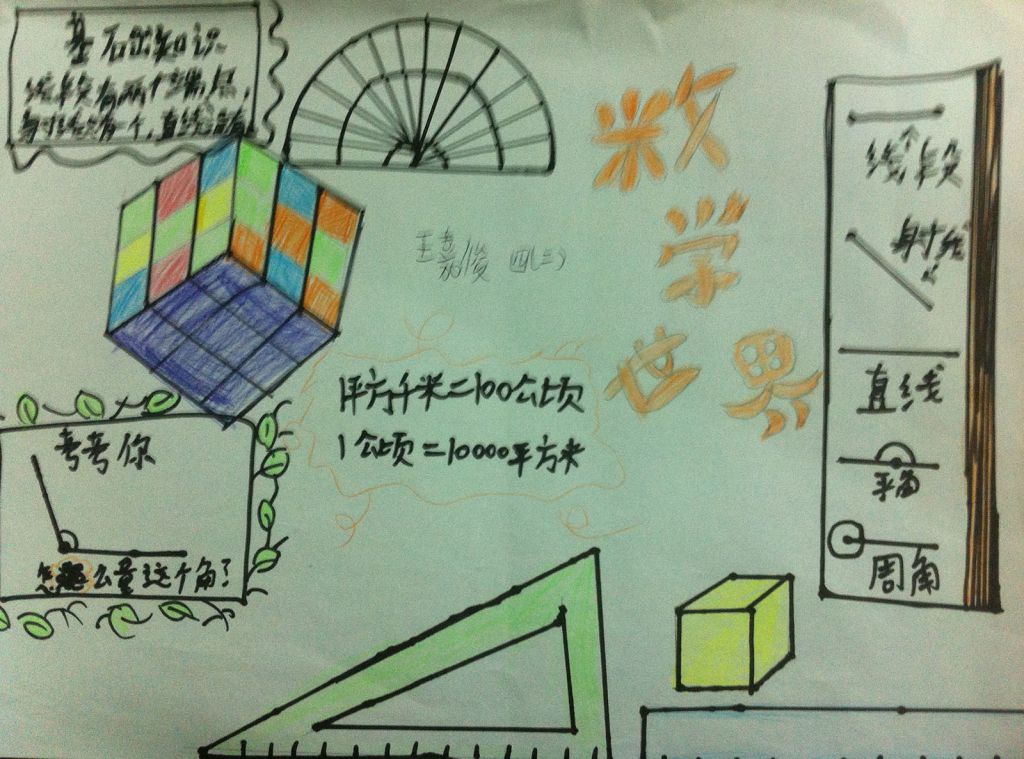 基石的知识
线段有两个端点，
射线只有一个，直线没有
数学
世界
王嘉俊 四(三)
1平方千米=100公顷
1公顷=10000平方米
考考你
怎么量这个角？
线段
射线
直线
平角
周角